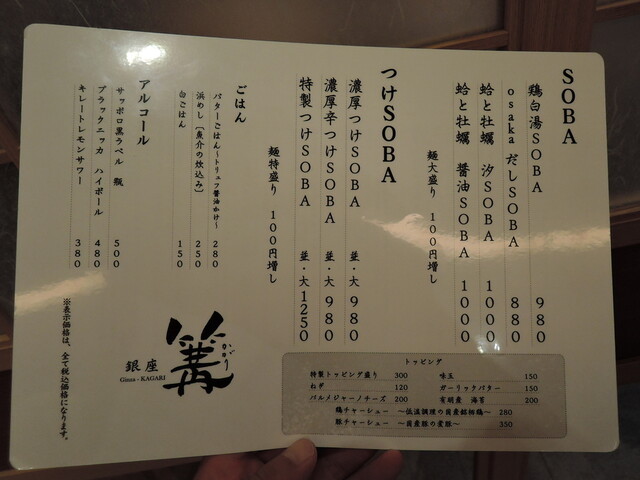 SOBA
鶏白湯SOBA 980
osakaだしSOBA 880
蛤と牡蠣 汐SOBA 1000
蛤と牡蠣 醤油SOBA 1000
麺大盛り 100円増し
つけSOBA
濃厚つけSOBA 並・大 980
濃厚辛つけSOBA 並・大 980
特製つけSOBA 並・大 1250
麺特盛り 100円増し
ごはん
バターごはん~トリュフ醤油かけ~ 280
浜めし【魚介の炊込み】 250
白ごはん 150
アルコール
サッポロ黒ラベル 瓶 500
ブラックニッカ ハイボール 480
キレートレモンサワー 380
トッピング
特製トッピング盛り 300
味玉 150
ねぎ 120
ガーリックバター 150
パルメジャーノチーズ 200
有明産 海苔 200
鶏チャーシュー ~低温調理の国産銘柄鶏~ 280
豚チャーシュー ~国産豚の
~ 350
銀座
Ginza - KAGARI
篝
かがり
※表示価格は、全て税込価格になります。